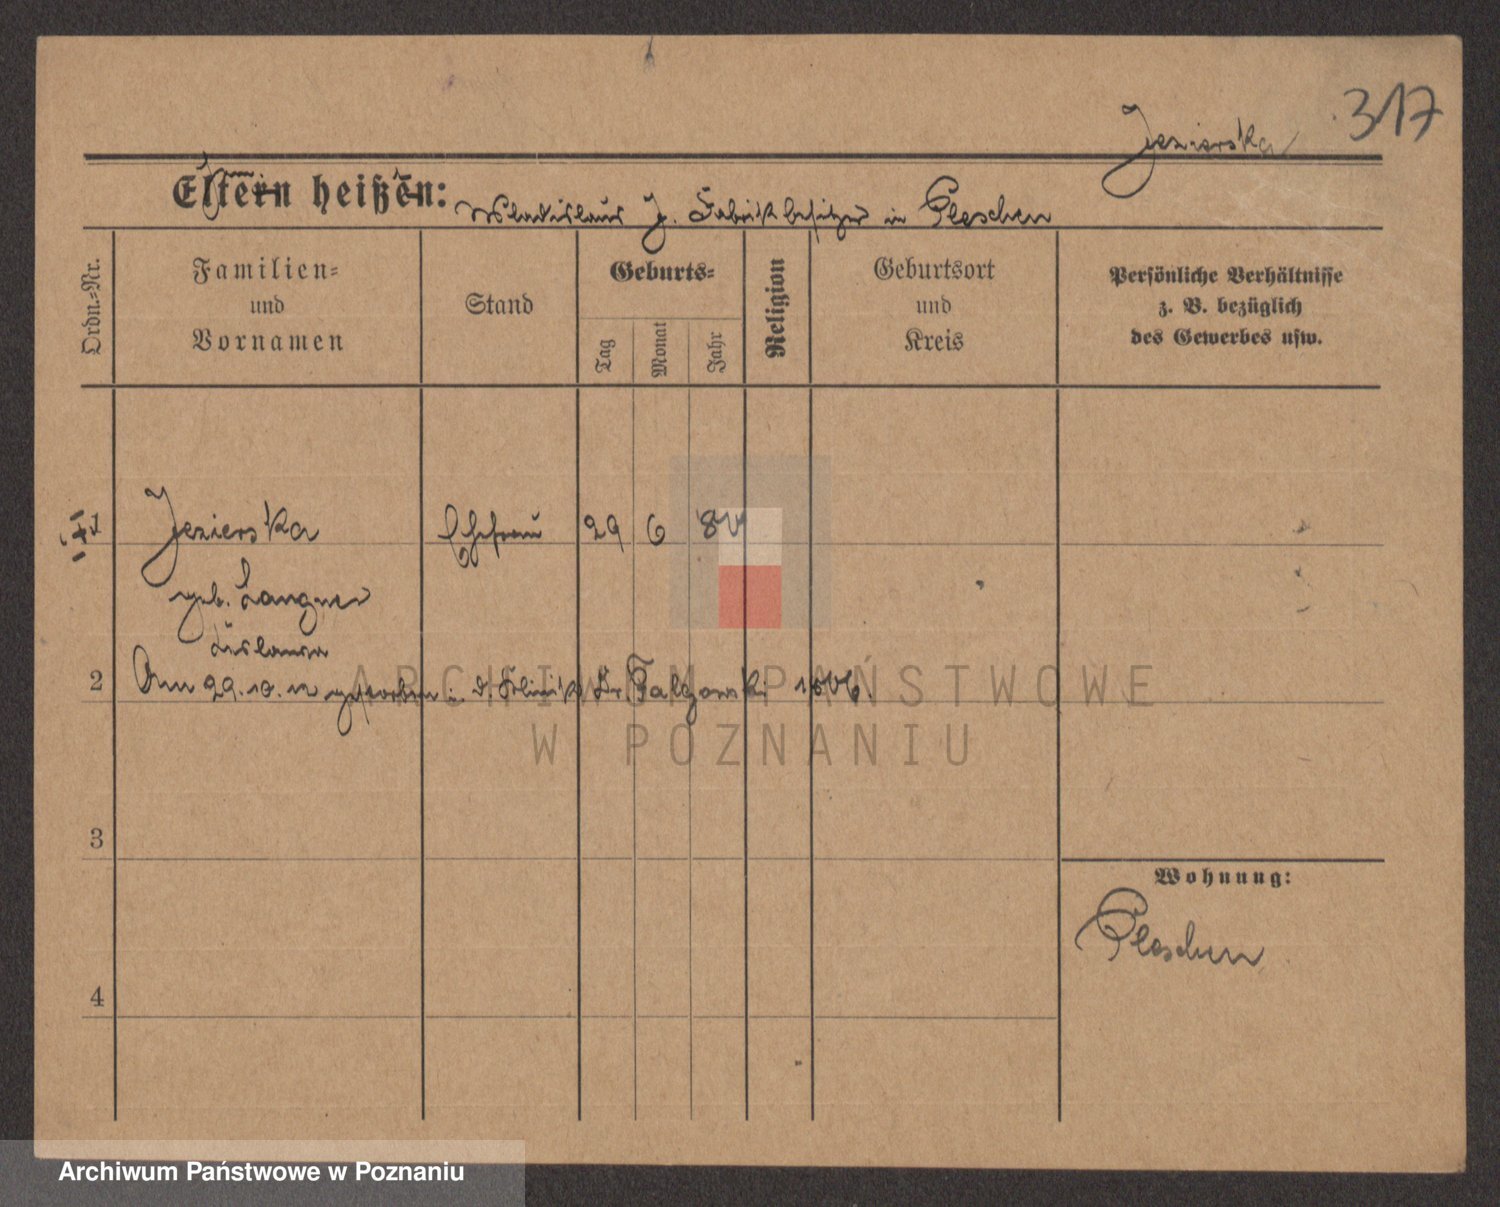 317
Jezierska
Eltern heißen: Wladislaus J. Fabrikbesitzer in Pleschen
Ordn.-Nr.
Familien-
und
Vornamen
Stand
Geburts-
Tag
Monat
Jahr
Religion
Geburtsort
und
Kreis
Persönliche Verhältnisse
z. B. bezüglich
des Gewerbes usw.
1 Jezierska Ehefrau 29 6
geb. Langner
2 Am 29.10.12 gestorben i. d. Klinik Dr.
3
4
Wohnung:
Pleschen
ARCHIWUM PAŃSTWOWE
W POZNANIU
Archiwum Państwowe w Poznaniu